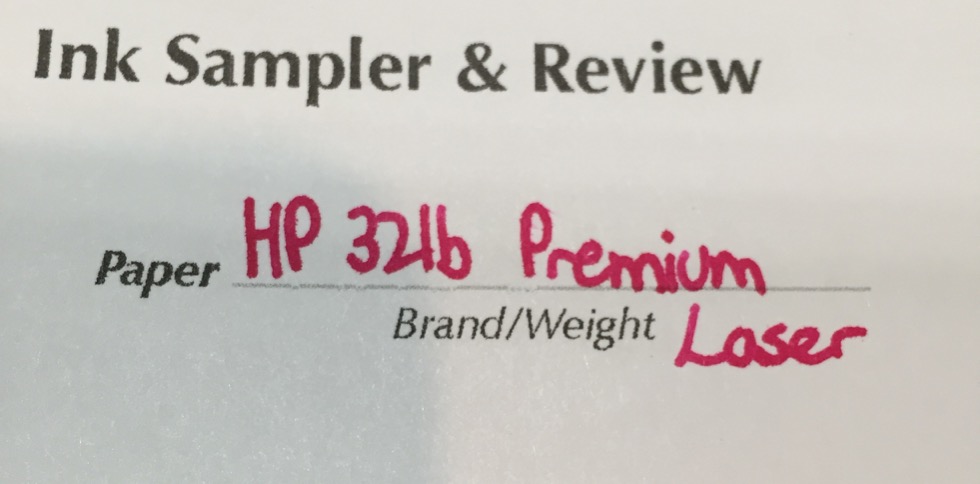 Ink Sampler & Review
Paper HP 32lb Premium
Brand/Weight Laser